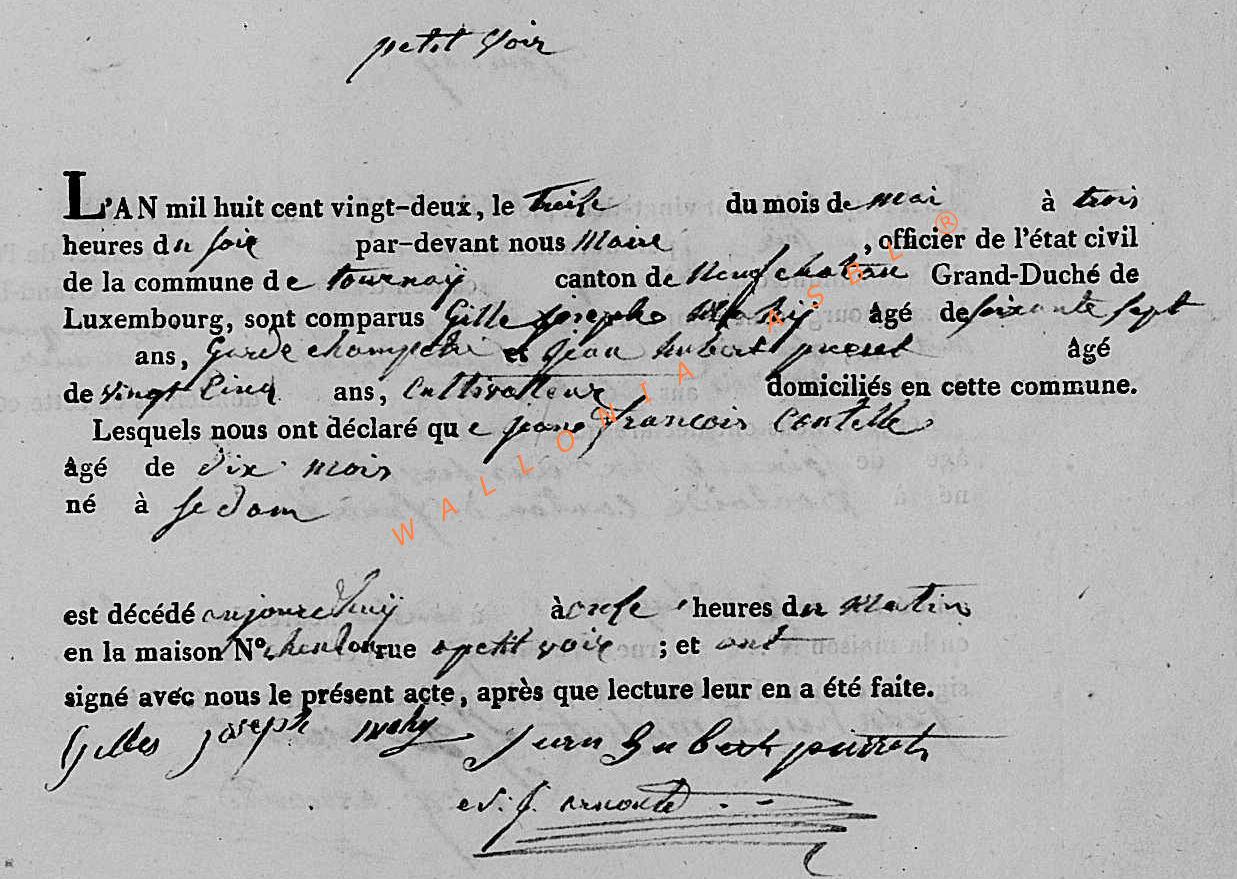 petit voir
L'AN mil huit cent vingt-deux, le treise du mois de mai à trois
heures du soir par-devant nous Maire, officier de l'état civil
de la commune de tournaÿ canton de Neufchateau Grand-Duché de
Luxembourg, sont comparus Gille joseph âgé de soixante sept
ans, Garde champetre et jean hubert âgé
de vingt Cinq ans, Cultivatteur domiciliés en cette commune.
Lesquels nous ont déclaré que jean françois
âgé de dix mois
né à
est décédé aujourdhuÿ à onse heures du matin
en la maison N° rue a petit voir ; et ont
signé avec nous le présent acte, après que lecture leur en a été faite.
Gilles joseph Jean hubert
WALLONIA ASBL ®